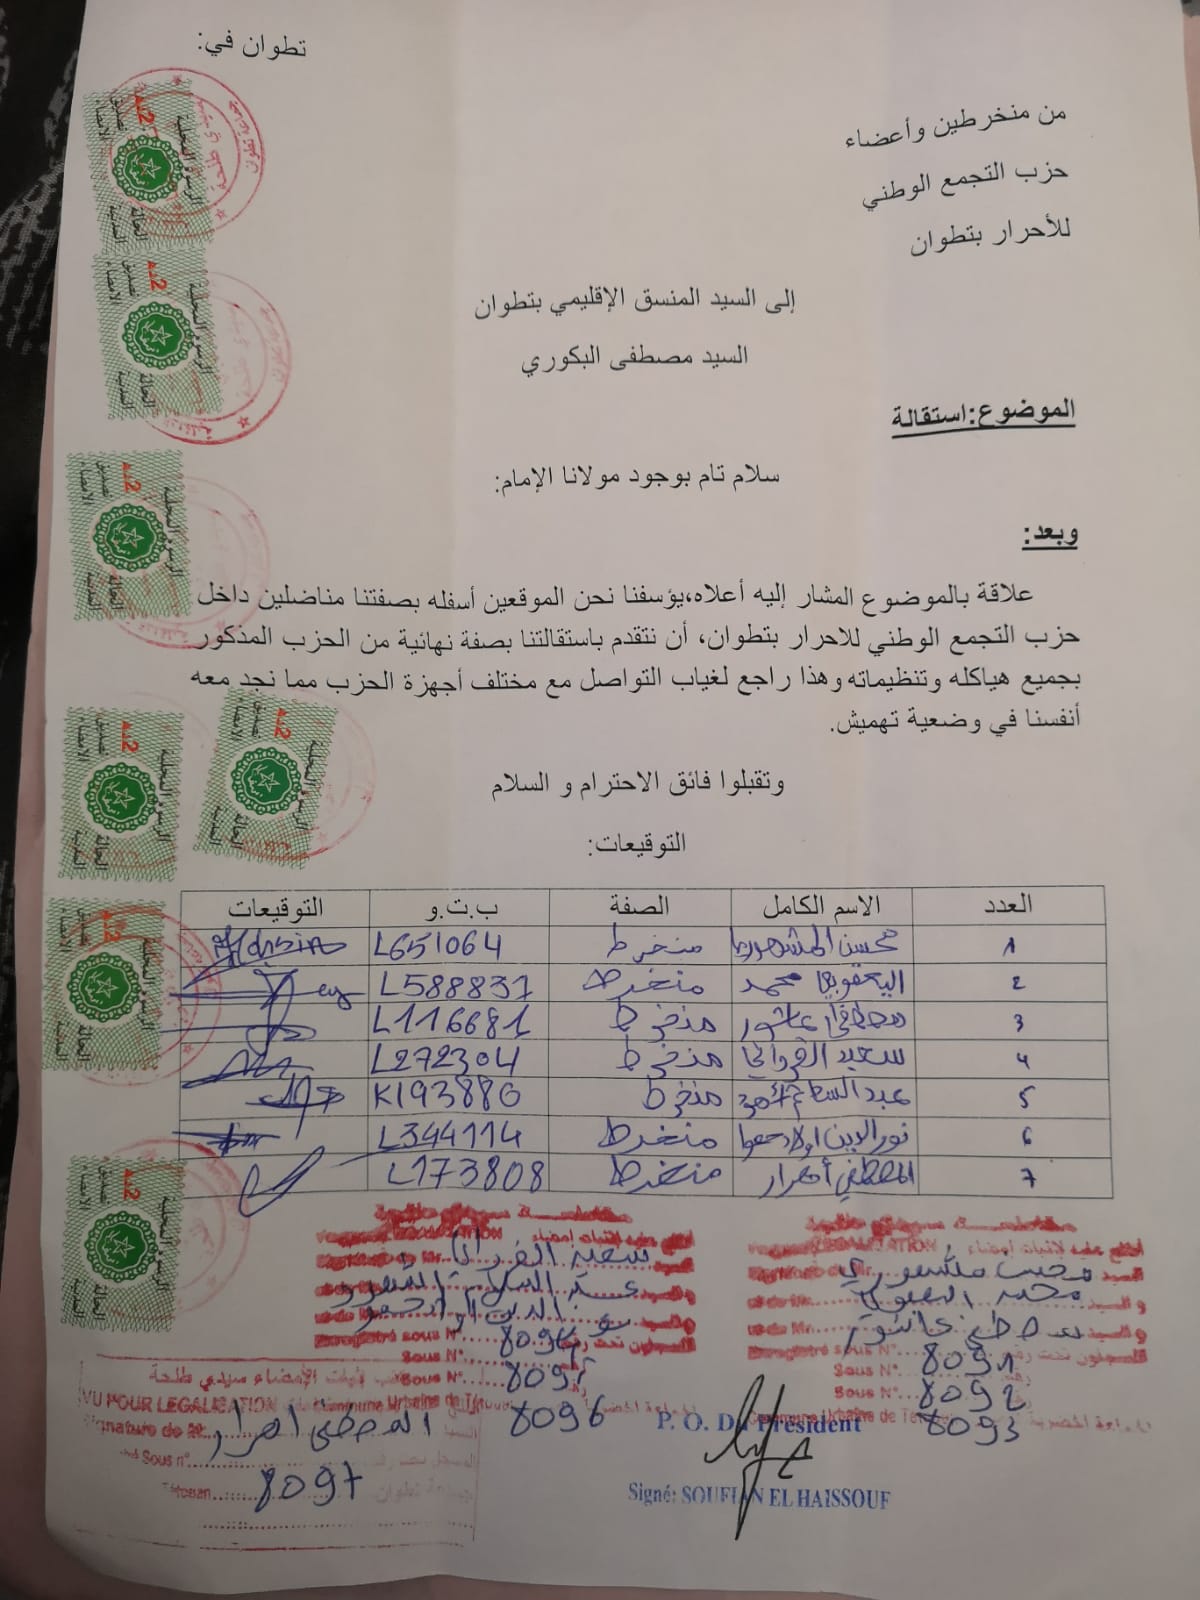 تطوان في:
من منخرطين وأعضاء
حزب التجمع الوطني
للأحرار بتطوان
إلى السيد المنسق الإقليمي بتطوان
السيد مصطفى البكوري
الموضوع:استقالة
سلام تام بوجود مولانا الإمام:
وبعد:
علاقة بالموضوع المشار إليه أعلاه،يؤسفنا نحن الموقعين أسفله بصفتنا مناضلين داخل
حزب التجمع الوطني للاحرار بتطوان، أن نتقدم باستقالتنا بصفة نهائية من الحزب المذكور
بجميع هياكله وتنظيماته وهذا راجع لغياب التواصل مع مختلف أجهزة الحزب مما نجد معه
أنفسنا في وضعية تهميش.
وتقبلوا فائق الاحترام و السلام
التوقيعات:
العدد الاسم الكامل الصفة ب.ت.و التوقيعات
1 محسن المشهوري منخرط L651064
2 اليعقوبي محمد منخرط L588831
3 مصطفى عاشور منخرط L116681
4 سعيد الفزواني منخرط L272304
5 عبد السلام منخرط K193886
6 نور الدين اولاد حمو منخرط L344114
7 المصطفى أهرار منخرط L173808
سعيد
8094
8095
8096
محمد
مصطفى عاشور
8091
8092
8093
P. O. Du Président
Signé: SOUFIAN EL HAISSOUF
VU POUR LEGALISATION
Signature de
المصطفى اهرار
Sous n°
8097